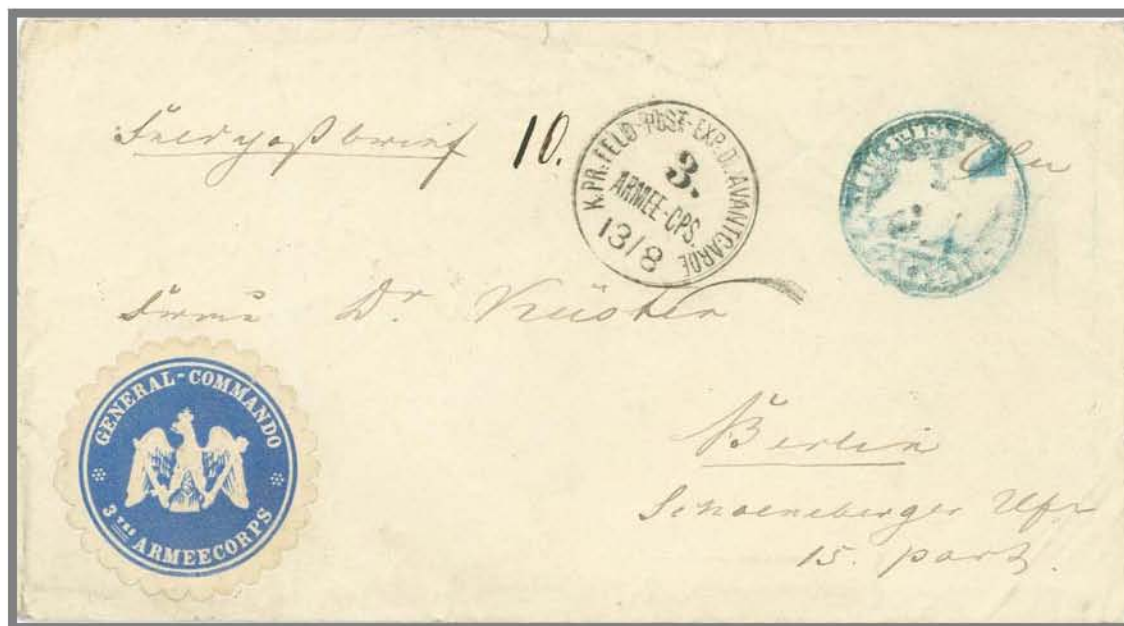 Feldpostbrief 10.
K.PR. FELD-POST-EXP. D. AVANTGARDE
3.
ARMEE-CPS.
13/8
Dr Küster
Berlin
Schoeneberger Ufr
15. part.
GENERAL-COMMANDO
3TES ARMEECORPS